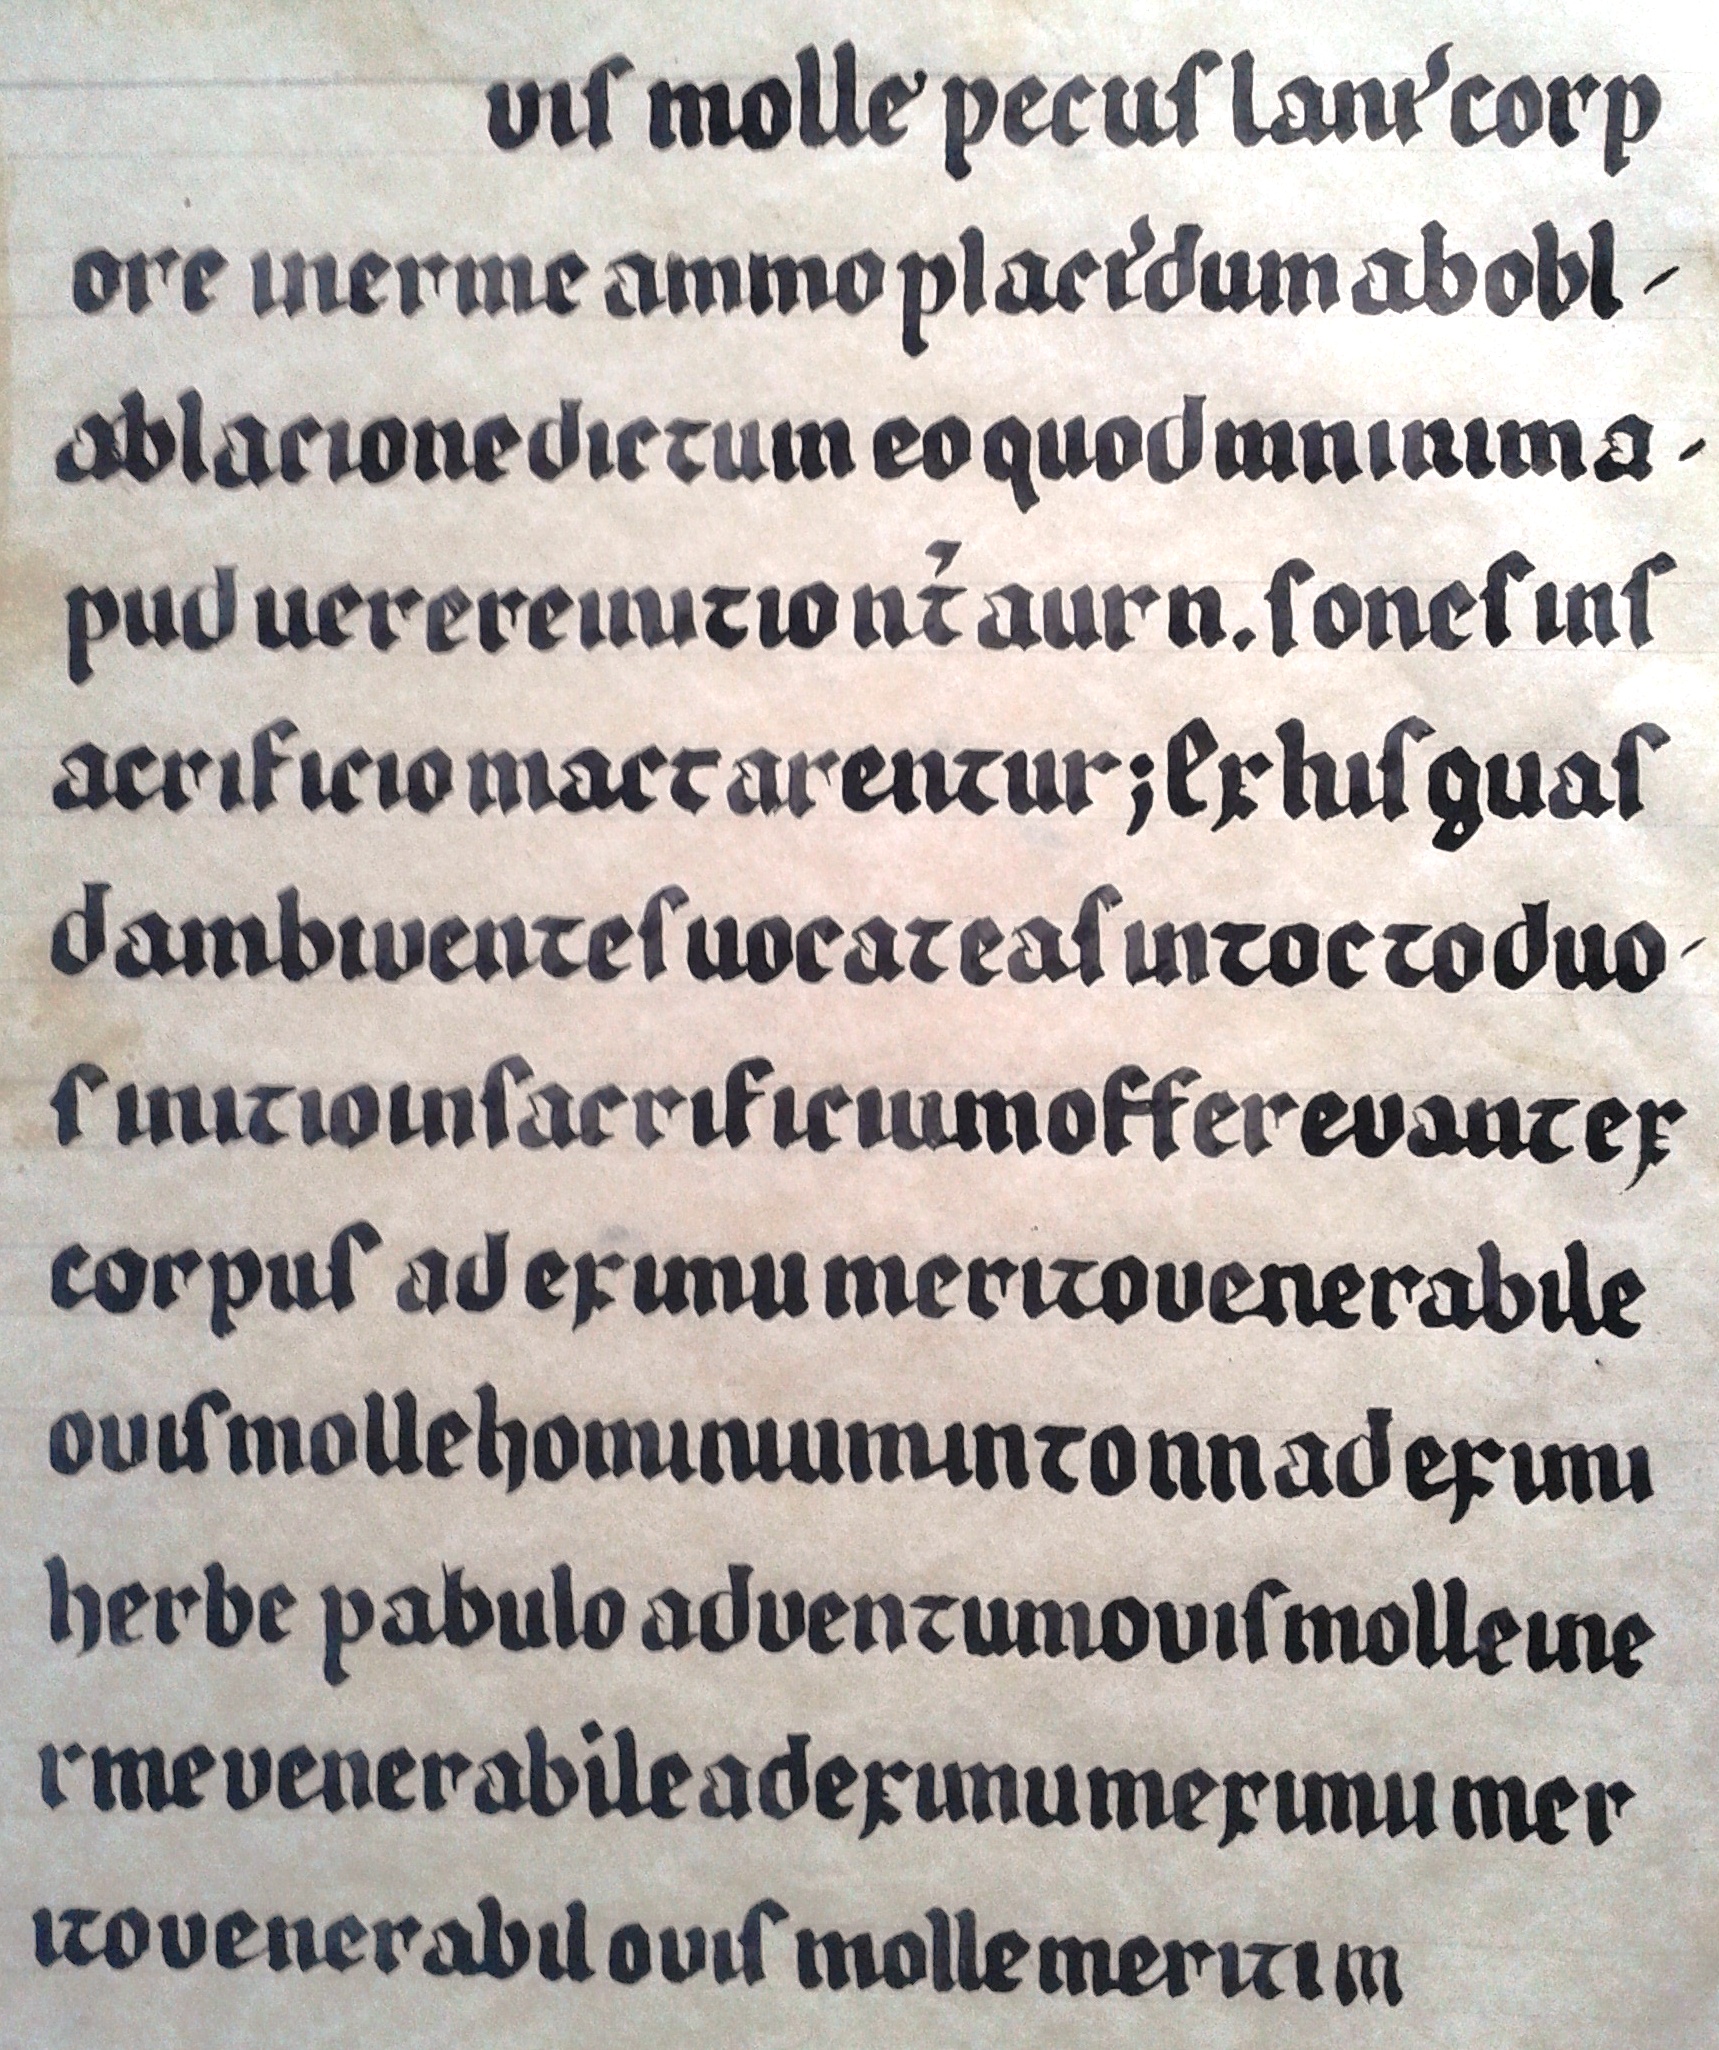 vis molle pecus lani corp
ore inerme animo placidum ab obl-
ablacione dictum eo quod mninima-
pud uerere initio nt aurn. sones ins
acrificio mactarentur; Ex his quas
dam biventes uocat eas int octo duo-
s initio in sacrificium offerevant ex
corpus ad eximu merito venerabile
ovis molle hominium in tonn ad eximi
herbe pabulo adventum ovis molle ine
rme venerabile ad eximum eximu mer
ito venerabil ovis molle meritim